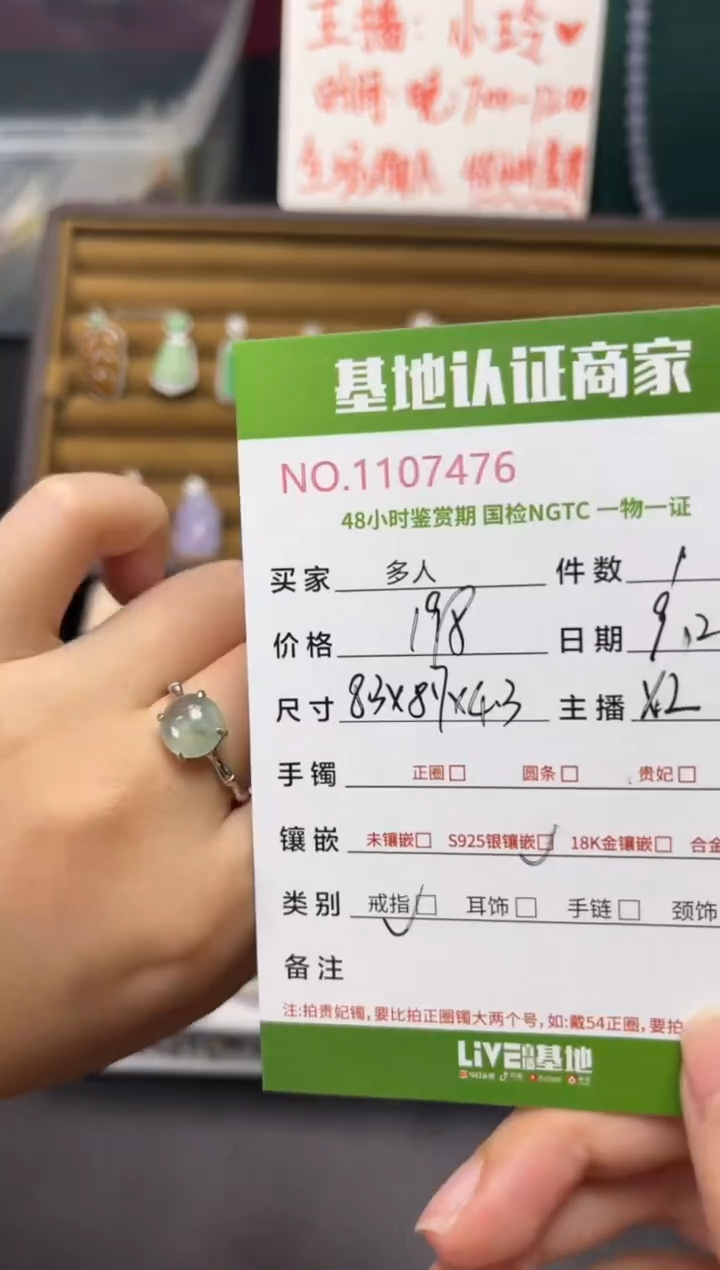 主播：小玲♥
时间：晚：7:00-12:00
基地认证商家
NO.1107476
48小时鉴赏期 国检NGTC 一物一证
买家 多人 件数 1
价格 198 日期 9.2
尺寸 83×87×43 主播
手镯 正圈□ 圆条□ 贵妃□
镶嵌 未镶嵌□ S925银镶嵌☑ 18K金镶嵌□ 合金
类别 戒指☑ 耳饰□ 手链□ 颈饰
备注
注:拍贵妃镯,要比拍正圈镯大两个号,如:戴54正圈,要拍
LiVE直播基地